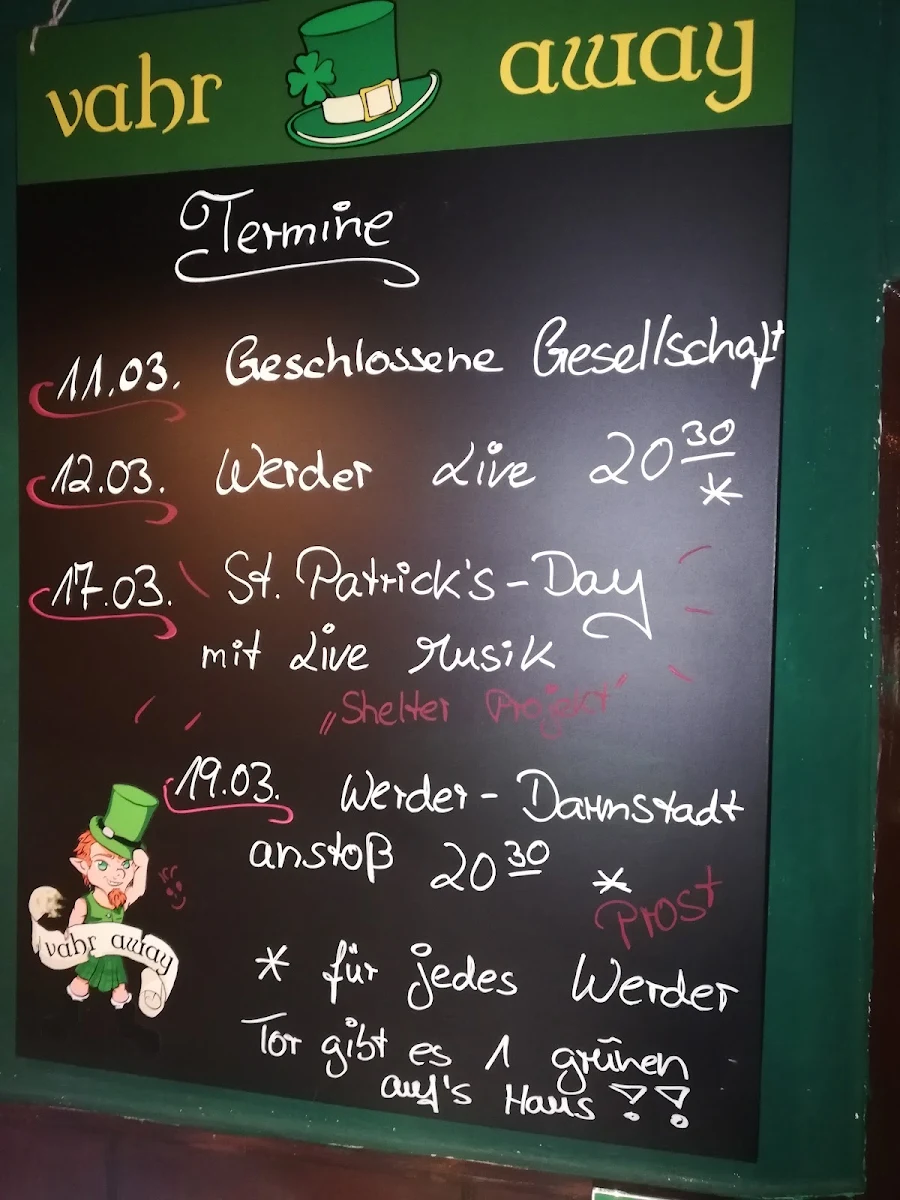 vahr away
Termine
11.03. Geschlossene Gesellschaft
12.03. Werder Live 20 30 *
17.03. St. Patrick's-Day
mit Live Musik
„Shelter Projekt"
19.03. Werder-Darmstadt
anstoß 20 30 *
Prost
vahr away
* für jedes Werder
Tor gibt es 1 grünen
auf's Haus !!